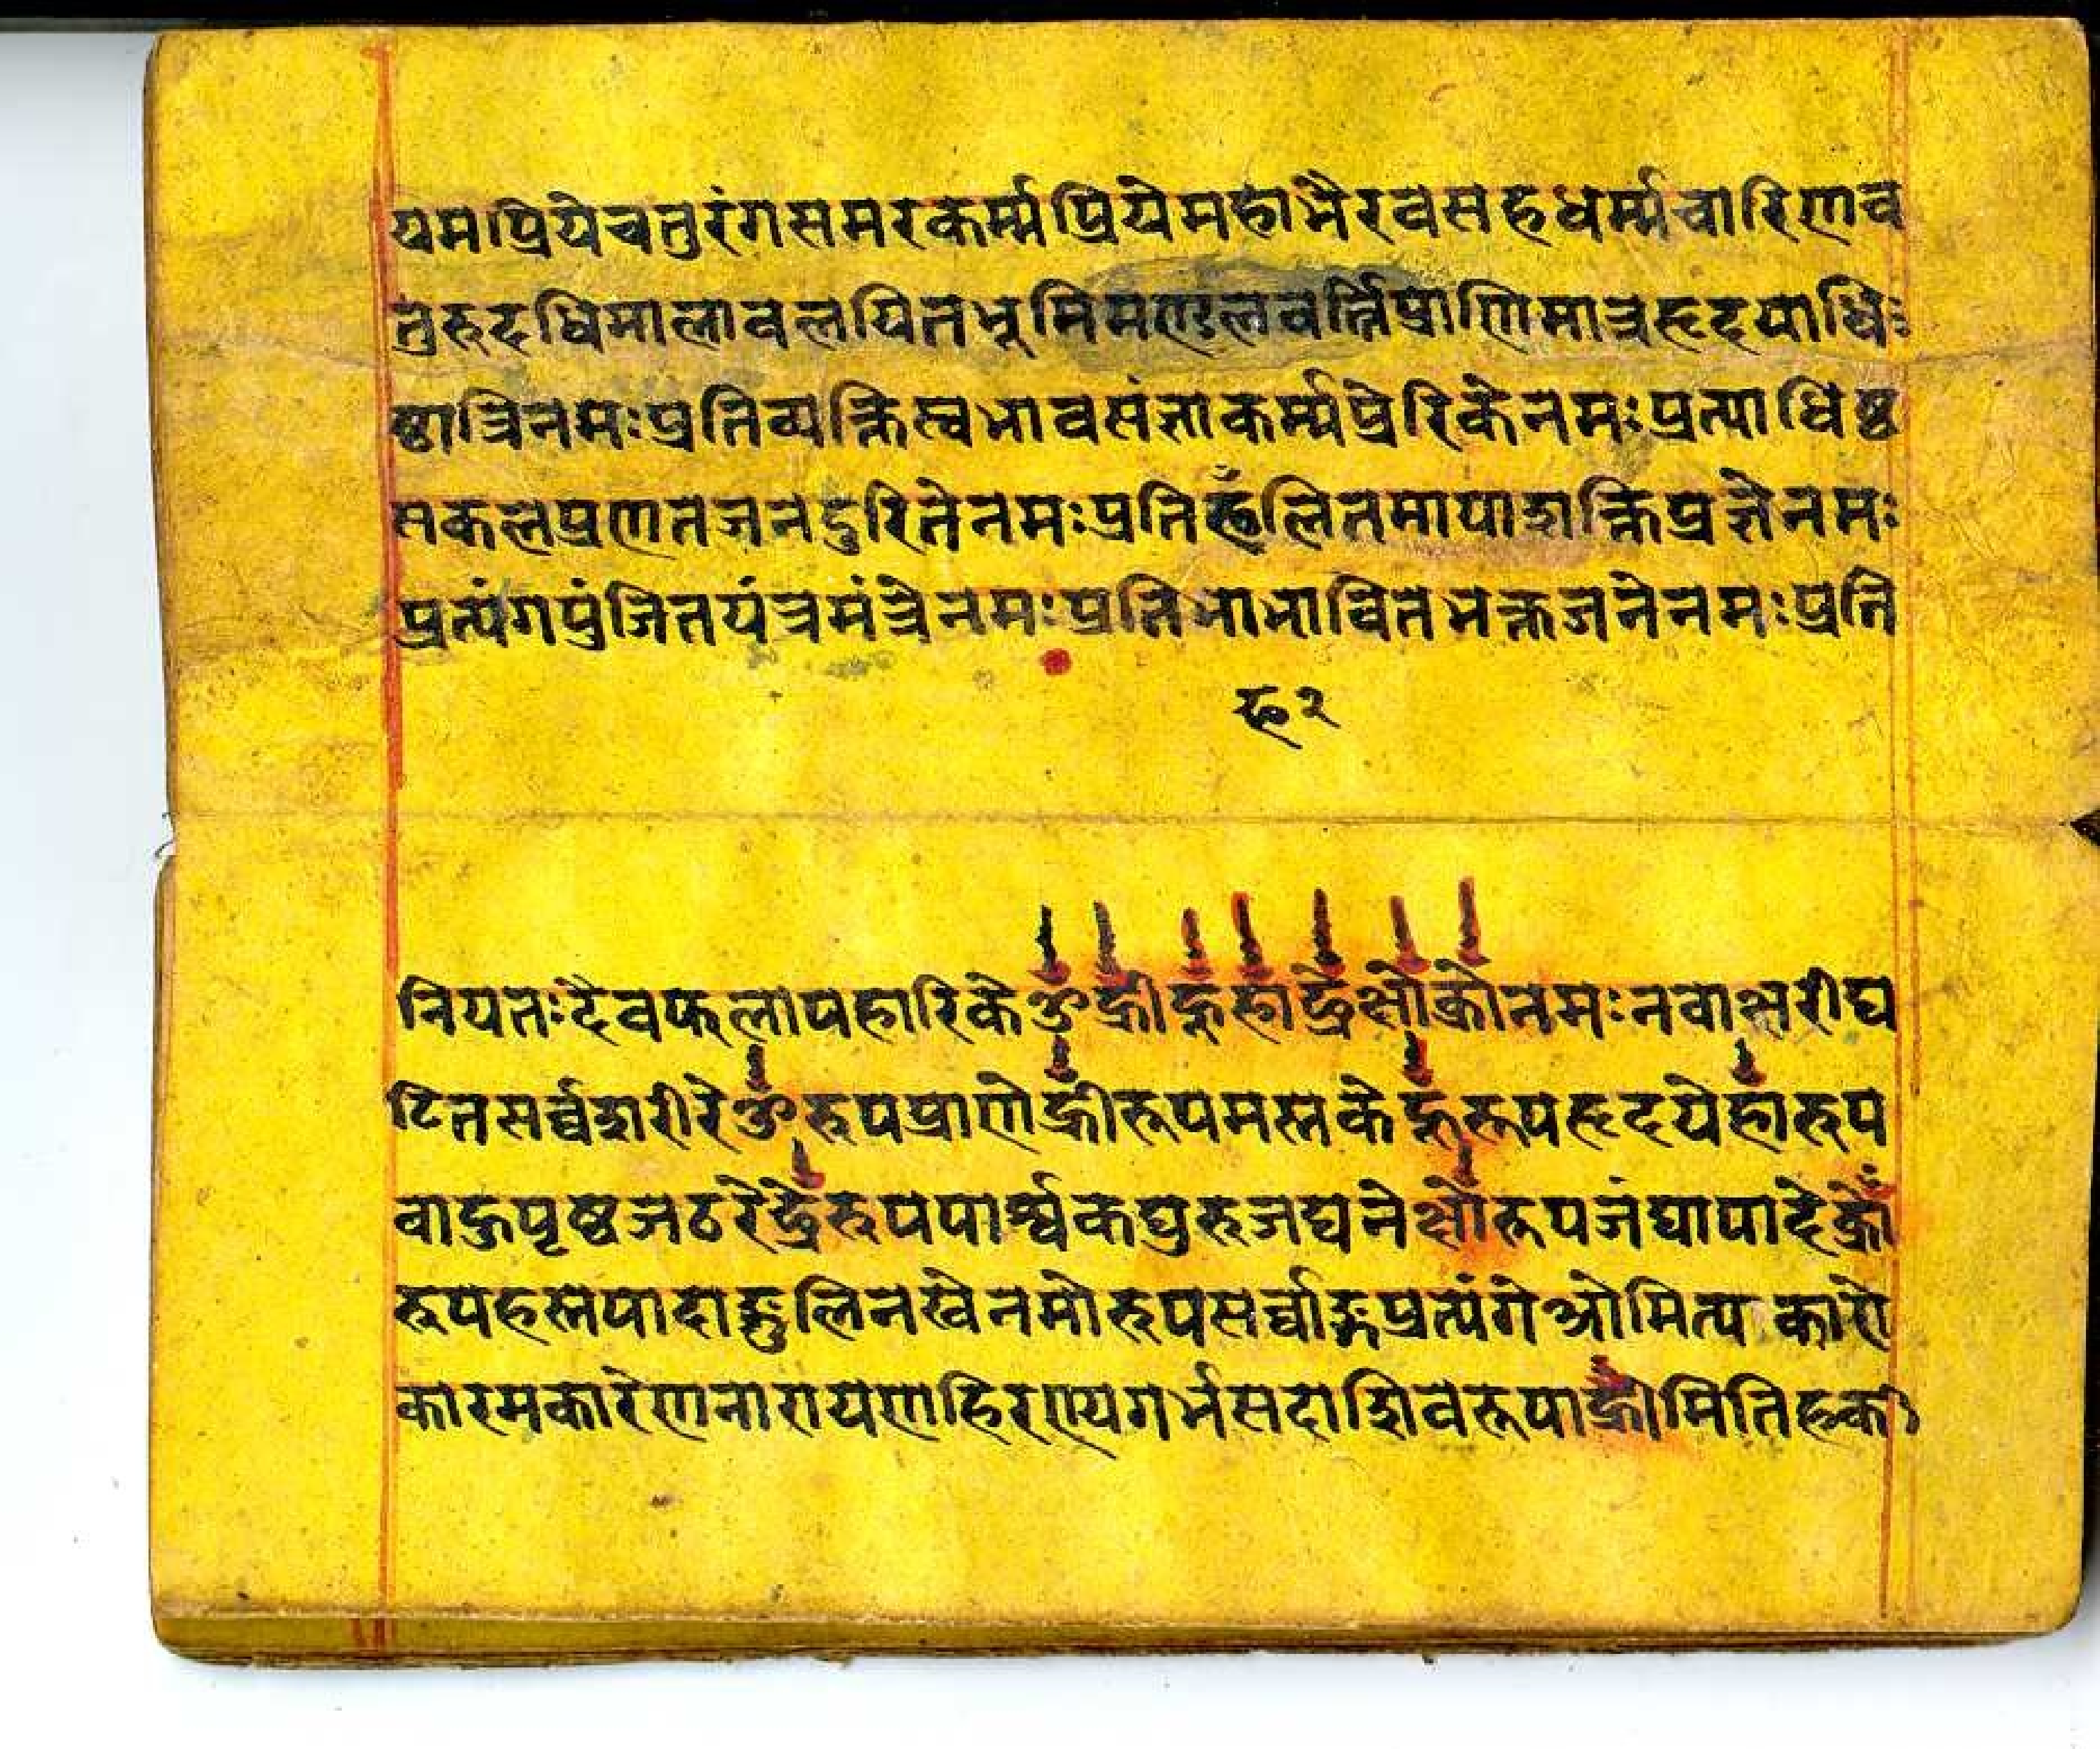 यमप्रिये चतुरंगसमरकर्म्मप्रिये महाभैरवसहधर्म्मचारिणि च
तुरुदधिमालावलयितभूमिमण्डलवर्त्तिप्राणिमात्रहृदयाधि
ष्ठात्रि नमः प्रतिव्यक्तिस्वभावसंज्ञाकर्म्मप्रेरिके नमः प्रत्याधिष्ठ
सकलप्रणतजनदुरिते नमः प्रति लितमायाशक्तिप्रज्ञे नमः
प्रत्यंगपुंजितयंत्रमंत्रे नमः प्रतिभाभावितभक्तजने नमः प्रति
८२
नियतः दैवफलापहारिके ॐ ह्रीं हूं हां ह्रें क्षों क्रों नमः नवाक्षरीघ
टितसर्व्वशरीरे ॐ रुपप्राणे ह्रीं रूपमस्तके हूं रूपहृदये हां रुप
वाहुपृष्ठजठरे ह्रें रुपपार्श्वकघुरुजघने क्षों रूपजंघापादे क्रों
रूपहस्तपादाङ्गुलिनखे नमो रुपसर्व्वाङ्गप्रत्यंगे ओमित्य कारो
कारमकारेण नारायणहिरण्यगर्भसदाशिवरूपा ह्रीमिति हक